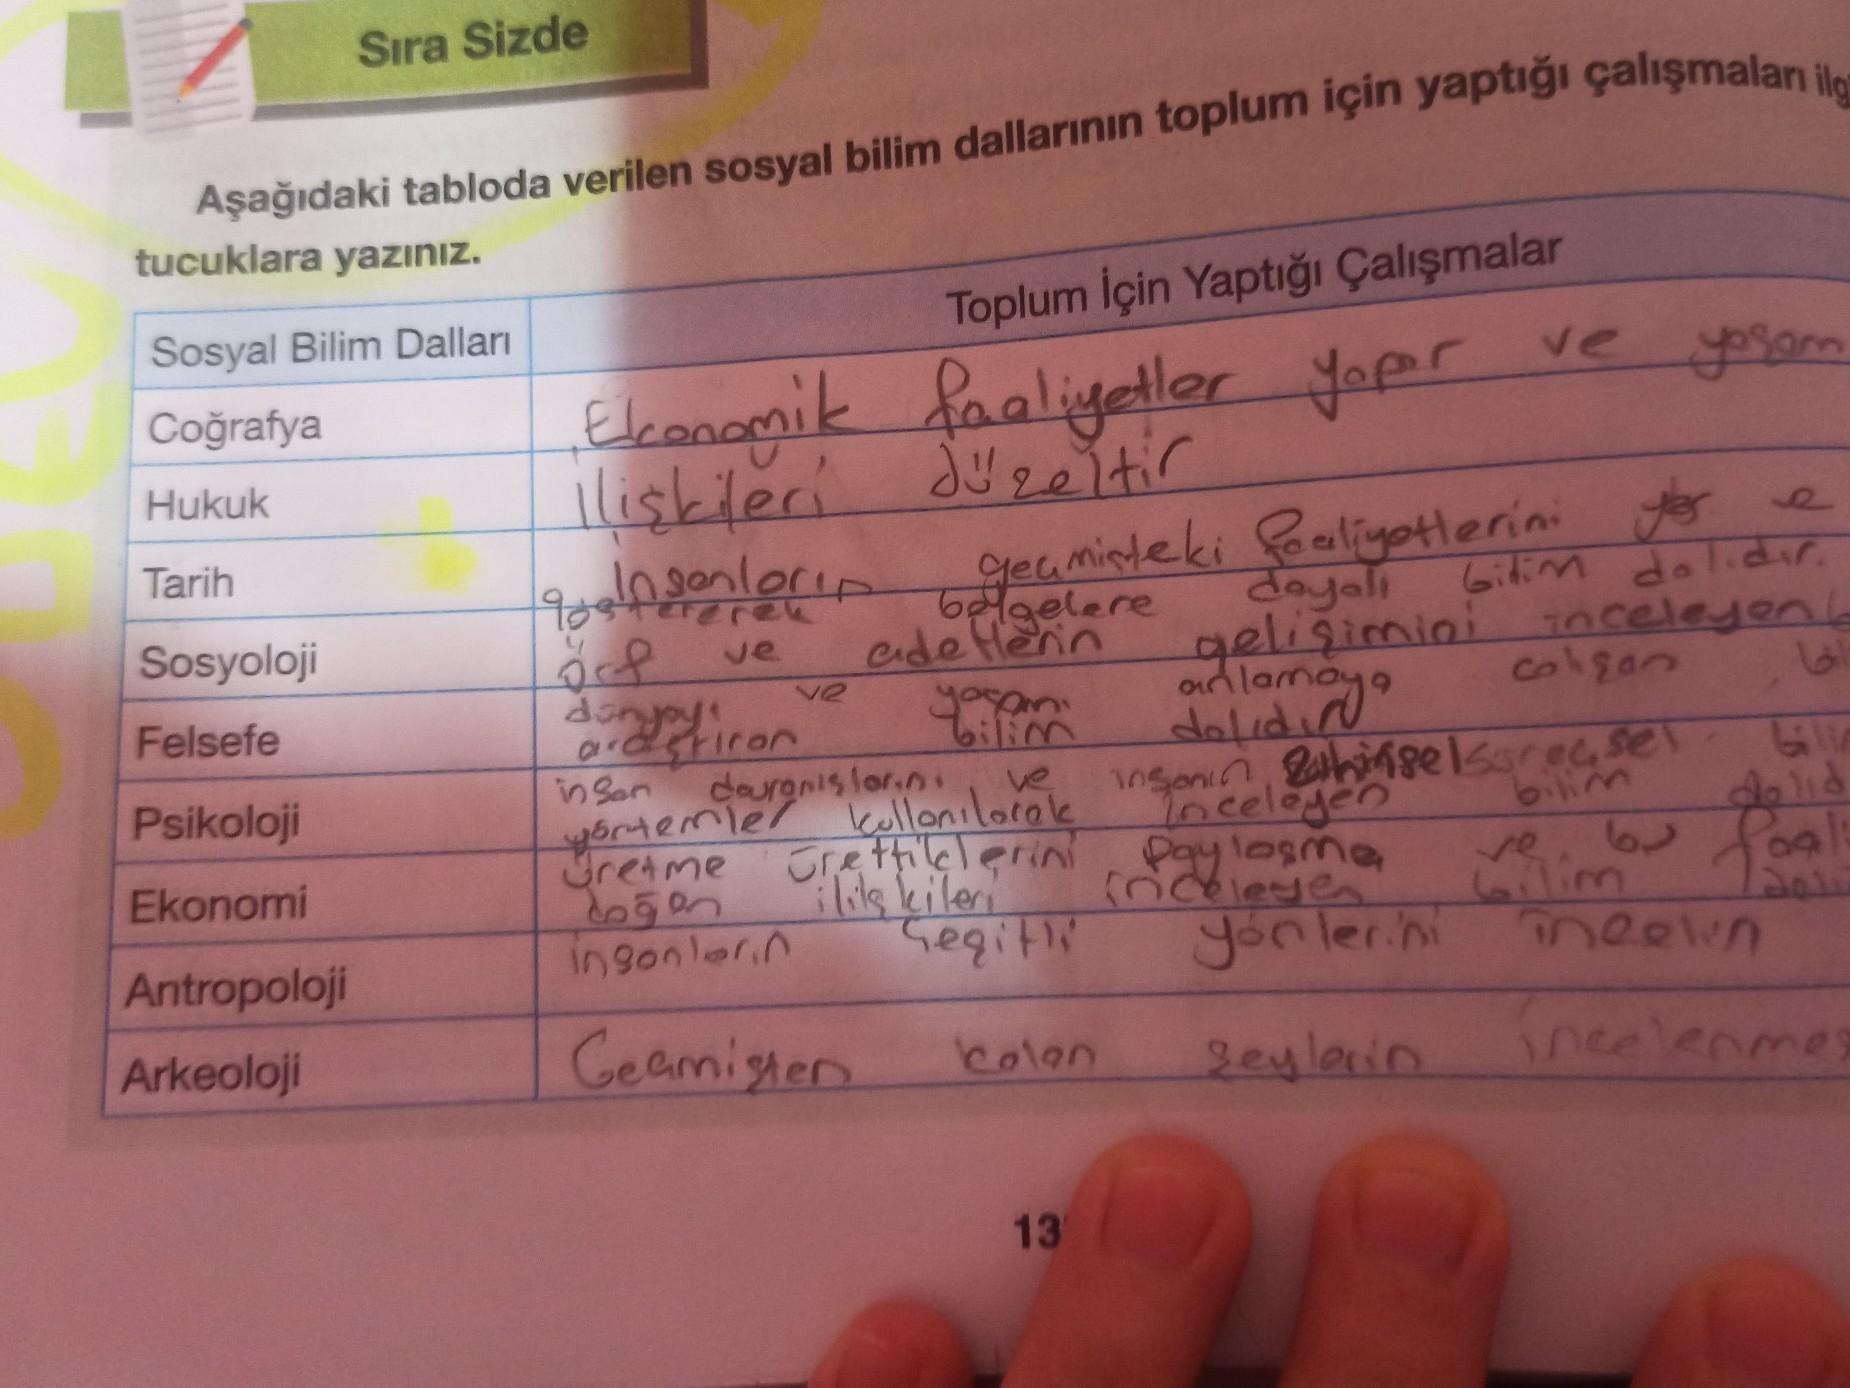 Sıra Sizde
Aşağıdaki tabloda verilen sosyal bilim dallarının toplum için yaptığı çalışmaları ilg
tucuklara yazınız.
Sosyal Bilim Dalları Toplum İçin Yaptığı Çalışmalar
Coğrafya Ekonomik faaliyetler yapar ve yaşam
Hukuk İlişkileri düzeltir
Tarih İnsanların geçmişteki faaliyetlerini yer ve
göstererek belgelere dayalı bilim dalıdır.
Sosyoloji Örf ve adetlerin gelişimini inceleyen
dünyayı ve yaşamı anlamaya çalışan
Felsefe araştıran bilim dalıdır
insan davranışlarını ve insanın
Psikoloji yöntemler kullanılarak inceleyen bilim dalıd
üretme ürettiklerini paylaşma ve bu faali
Ekonomi doğan ilişkileri inceleyen bilim
insanların çeşitli yönlerini
Antropoloji
Arkeoloji Geçmişten kalan şeylerin incelenmes
13